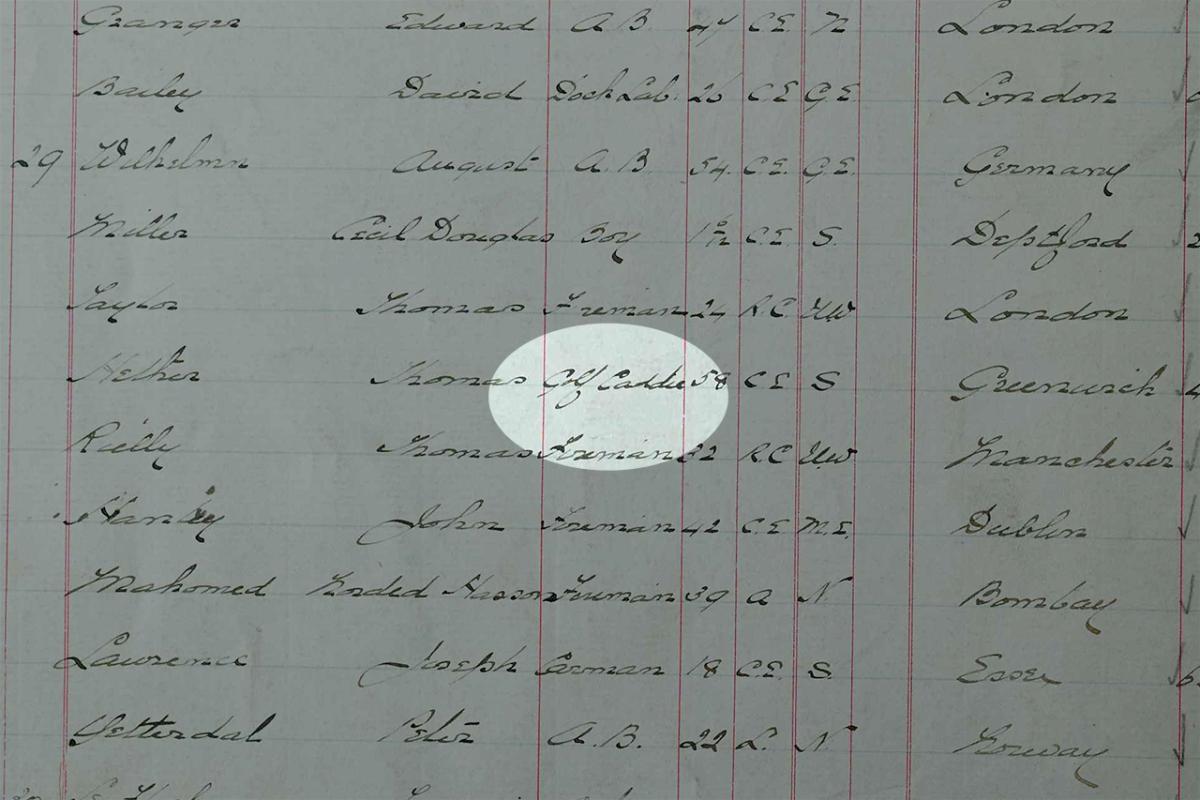 Granger Edward A.B. 47 C.E. N London
Bailey David Dock Lab. 26 C.E G.E. London
29 Wilhelmn August A.B. 54. C.E. G.E. Germany
Miller Cecil Douglas Boy C.E. S. Deptford 2
Taylor Thomas Fireman 24 R.C U.W London
Nether Thomas Golf Caddie 58 C E S Greenwich 4
Rielly Thomas Fireman 32 R.C U.W Manchester
John Fireman 42 C.E M.E. Dublin
Mahomed Hasson Fireman 39 a N Bombay
Lawrence Joseph Carman 18 C.E. S. Essex 6
Yetterdal Peter A.B. 22 L. N Norway